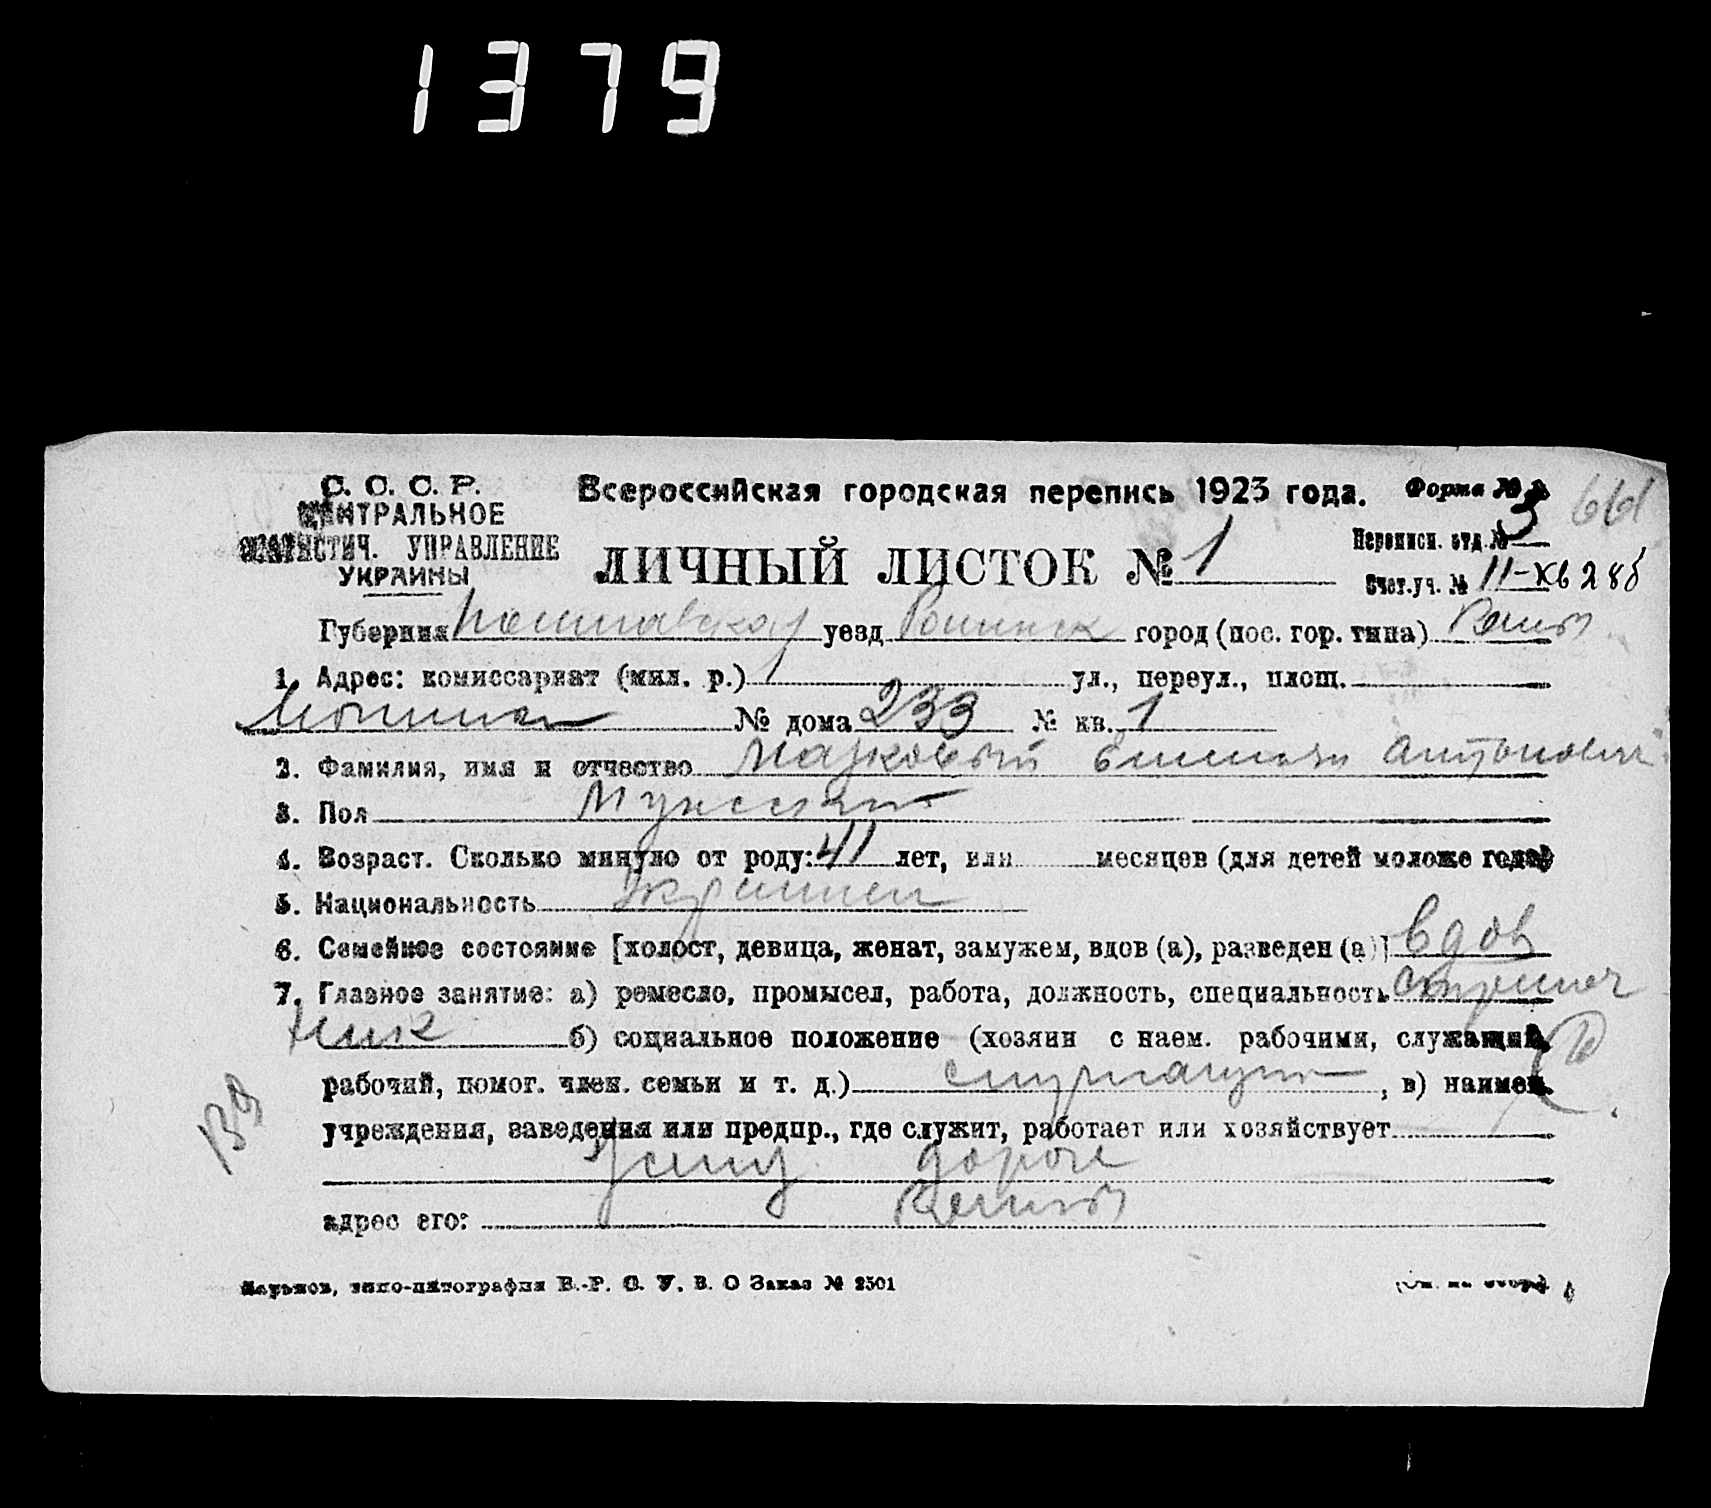 1379
С. С. С. Р.
ЦЕНТРАЛЬНОЕ
СТАТИСТИЧ. УПРАВЛЕНИЕ
УКРАИНЫ
Всероссийская городская перепись 1923 года.
Форма №
66
ЛИЧНЫЙ ЛИСТОК № 1
Переписн. отд. № 3
Счет. уч. № 11-кв 28б
Губерния Полтавская уезд город (пос. гор. типа)
1. Адрес: комиссариат (мил. р.) 1 ул., переул., площ.
№ дома 233 № кв. 1
2. Фамилия, имя и отчество Антонович
3. Пол Мужской
4. Возраст. Сколько минуло от роду: 41 лет, или месяцев (для детей моложе года)
5. Национальность Украинец
6. Семейное состояние [холост, девица, женат, замужем, вдов (а), разведен (а)] вдов
7. Главное занятие: а) ремесло, промысел, работа, должность, специальность стрелоч
ник б) социальное положение (хозяин с наем. рабочими, служащий,
рабочий, помог. член. семьи и т. д.) , в) наимен.
учреждения, заведения или предпр., где служит, работает или хозяйствует
дороги
адрес его:
Харьков, типо-литография В.-Р. С. У. В. О Заказ № 2501